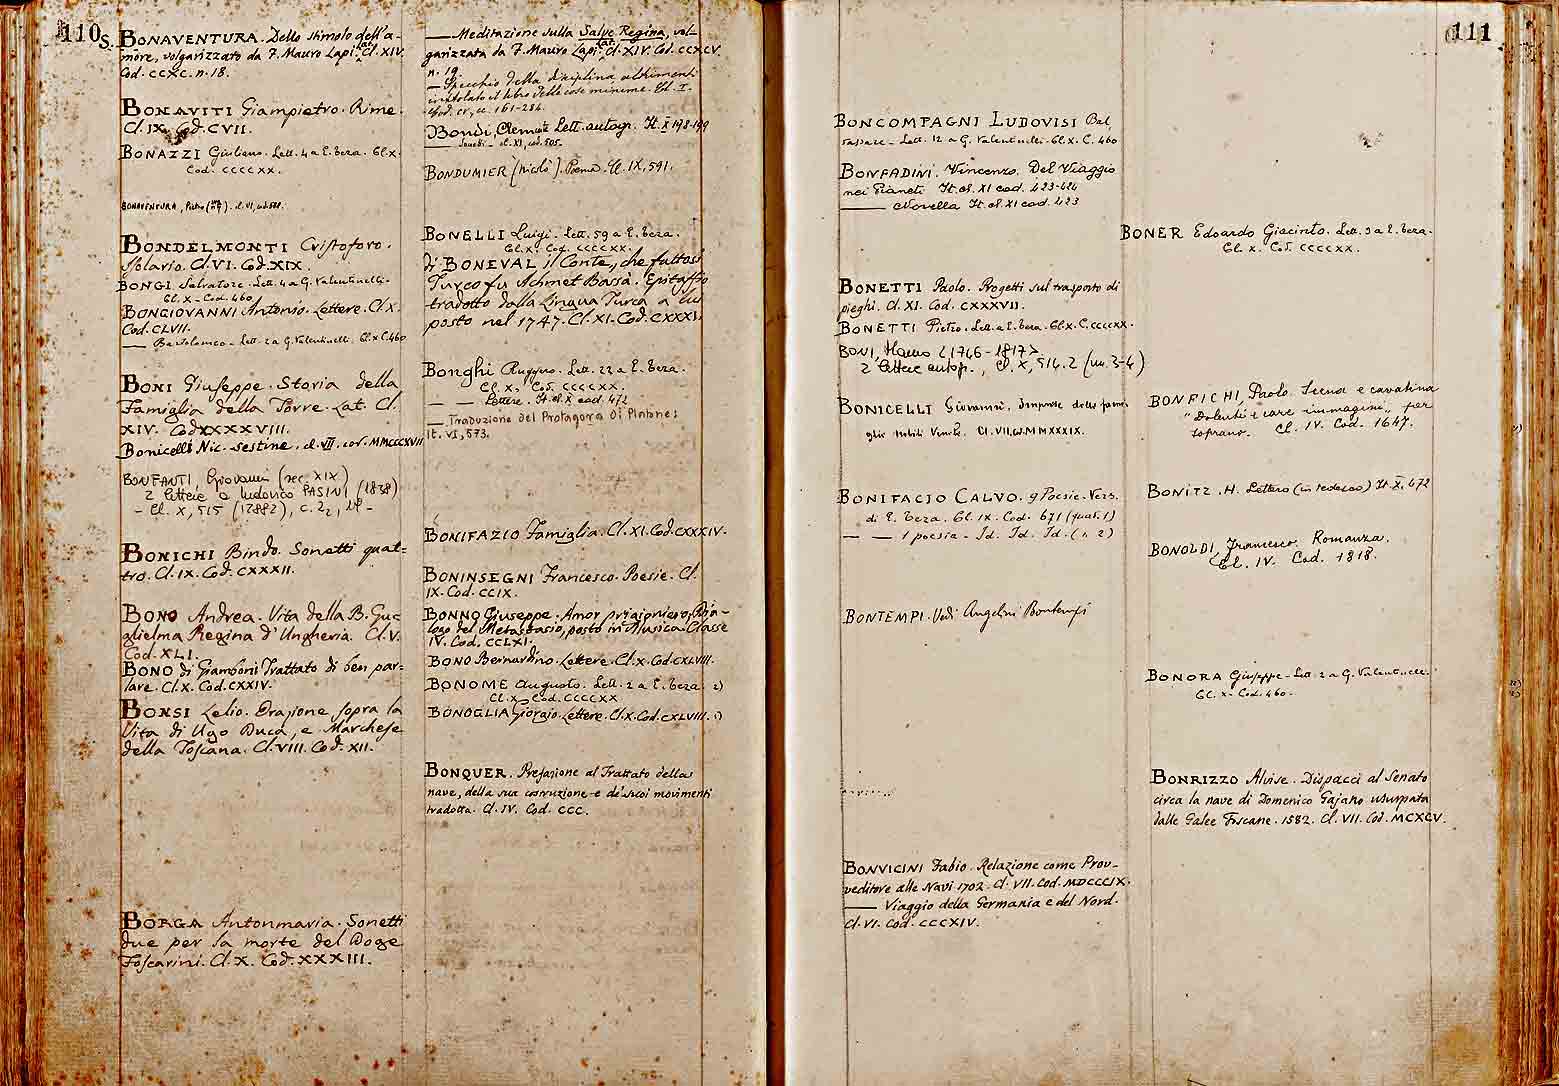 110
S. BONAVENTURA. Dello stimolo dell'a-
more, volgarizzato da F. Mauro Lapi. Lat. Cl. XIV.
Cod. CCXC. n. 18.
BONAVITI Giampietro. Rime.
Cl. IX. Cod. CVII.
BONAZZI Giuliano. Lett. 4 a E. Teza. Cl. X.
Cod. CCCCXX.
BONAVENTURA, Pietro cl. VI, cod.
BONDELMONTI Cristoforo.
Isolario. Cl. VI. Cod. XIX.
BONGI Salvatore. Lett. 4 a G. Valentinelli.
Cl. X. Cod. 460
BONGIOVANNI Antonio. Lettere. Cl. X.
Cod. CLVII.
—— Bartolomeo. Lett. 2 a G. Valentinelli. Cl. X C. 460
BONI Giuseppe. Storia della
Famiglia della Torre. Lat. Cl.
XIV. Cod. XXXXVIII.
Bonicelli Nic. sestine. cl. VII. cod. MMCCCXVII
BONFANTI, Giovanni (sec. XIX)
2 lettere a Ludovico PASINI (1838)
- Cl. X, 515 (12882), c. 22,
BONICHI Bindo. Sonetti quat=
tro. Cl. IX. Cod. CXXXII.
BONO Andrea. Vita della B. Gu
glielma Regina d'Ungheria. Cl. V.
Cod. XLI.
BONO di Giamboni Trattato di ben par=
lare. Cl. X. Cod. CXXIV.
BONSI Lelio. Orazione sopra la
Vita di Ugo Duca, e Marchese
della Toscana. Cl. VIII. Cod. XII.
BORGA Antonmaria. Sonetti
due per la morte del Doge
Foscarini. Cl. X. Cod. XXXIII.
—— Meditazione sulla Salve Regina, vol-
garizzata da F. Mauro Lapi. Lat. Cl. XIV. Cod. CCXCV.
n. 19.
— Specchio della disciplina altrimenti
intitolato il libro delle cose minime. Cl. I.
Cod. CV, cc. 161-284.
Bondi, Clemente Lett. autogr. It. X 178-179
—— Sonetti - cl. XI, cod. 505.
BONDUMIER (Nicolò). Poema. Cl. IX, 591.
BONELLI Luigi. Lett. 59 a E. Teza.
Cl. X. Cod. CCCCXX.
di BONEVAL il Conte, che fattosi
Turco fu Achmet Bassà. Epitaffio
tradotto dalla Lingua Turca a lui
posto nel 1747. Cl. XI. Cod. CXXXI.
Bonghi Ruggero. Lett. 22 a E. Teza.
Cl. X. Cod. CCCCXX.
— — Lettere. It. cl. X cod. 472
— Traduzione del Protagora di Platone:
It. VI, 573.
BONIFAZIO Famiglia. Cl. XI. Cod. CXXXIV.
BONINSEGNI Francesco. Poesie. Cl.
IX. Cod. CCIX.
BONNO Giuseppe. Amor prigioniero, Dia-
logo del Metastasio, posto in Musica. Classe
IV. Cod. CCLXI.
BONO Bernardino. Lettere. Cl. X. Cod. CXLVIII.
BONOME Augusto. Lett. 2 a E. Teza. 2)
Cl. X. Cod. CCCCXX
BONOGLIA Giorgio. Lettere. Cl. X. Cod. CXLVIII. 1)
BONQUER. Prefazione al Trattato della
nave, della sua costruzione e de' suoi movimenti
tradotta. Cl. IV. Cod. CCC.
111
BONCOMPAGNI LUDOVISI Bal
tassare. Lett. 12 a G. Valentinelli. Cl. X. C. 460
BONFADINI. Vincenzo. Del Viaggio
nei Pianeti It. cl. XI cod. 423-424
—— Novella It. cl. XI cod. 423
BONETTI Paolo. Progetti sul trasporto di
pieghi. Cl. XI. Cod. CXXXVII.
BONETTI Pietro. Lett. a E. Teza. Cl. X. C. CCCCXX.
BONI, Mauro <1746-1817>
2 lettere autogr., Cl. X, 514.2 (nn. 3-4)
BONICELLI Giovanni. Imprese delle fami-
glie Nobili Venete. Cl. VII. Cod. MMXXXIX.
BONIFACIO CALVO. 9 Poesie. Vers.
di E. Teza. Cl. IX. Cod. 671 (quat. 1)
— — 1 poesia - Id. Id. Id. (n. 2)
BONTEMPI. Vedi Angelini Bontempi
BONVICINI Fabio. Relazione come Prov-
veditore alle Navi 1702. Cl. VII. Cod. MDCCCIX.
—— Viaggio della Germania e del Nord.
Cl. VI. Cod. CCCXIV.
BONER Edoardo Giacinto. Lett. 3 a E. Teza.
Cl. X. Cod. CCCCXX.
BONFICHI, Paolo. Scena e cavatina
"Dolenti e care immagini" per
soprano. Cl. IV. Cod. 1647.
BONITZ. H. Lettera (in tedesco) It. X, 472
BONOLDI, Francesco. Romanza.
Cl. IV. Cod. 1818.
BONORA Giuseppe. Lett. 2 a G. Valentinelli.
Cl. X. Cod. 460.
BONRIZZO Alvise. Dispacci al Senato
circa la nave di Domenico Gajano usurpata
dalle Galee Toscane. 1582. Cl. VII. Cod. MCXCV.